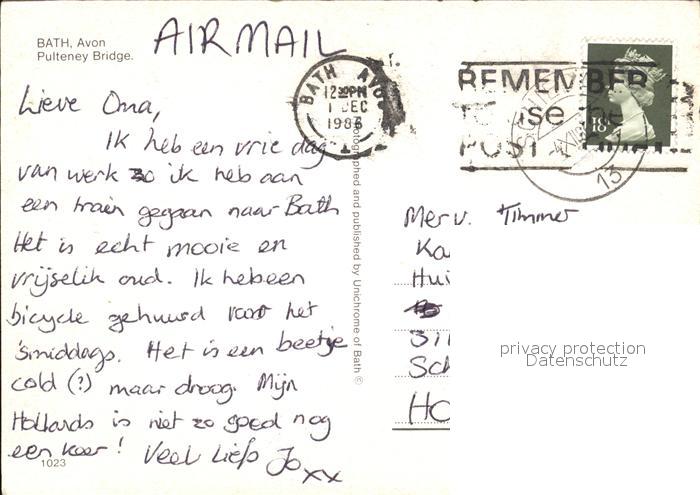 BATH, Avon
Pulteney Bridge.
AIRMAIL
BATH AVON
12 30 PM
1 DEC
1986
REMEMBER
to use the
POST
18
13
Lieve Oma,
Ik heb een vrie dag
van werk zo ik heb aan
een train gegaan naar Bath
Het is echt mooie en
vrijselik oud. Ik heb een
bicycle gehuurd voor het
'smiddags. Het is een beetje
cold (?) maar droog. Mijn
Hollands is niet zo goed nog
een keer! Veel Liefs Jo xx
1023
Photographed and published by Unichrome of Bath ®
Mevr. Timmer
Ka
Hui
Sch
HO
privacy protection
Datenschutz